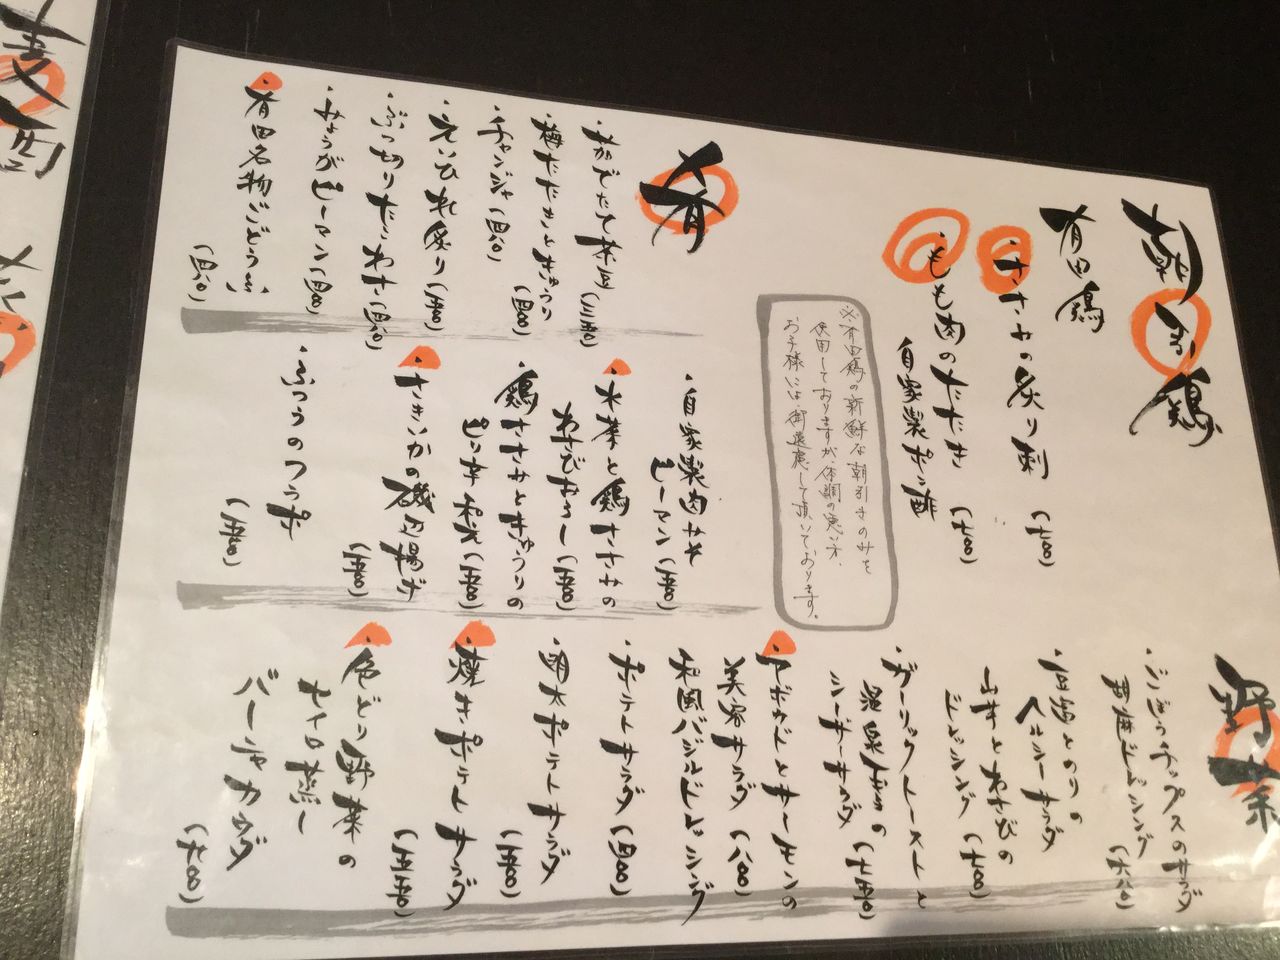 朝引鶏
有田鶏
・ささみの炙り刺 (七〇〇)
・もも肉のたたき (七〇〇)
自家製ポン酢
※有田鶏の新鮮な朝引きのみを
使用しておりますが体調の悪い方、
お子様には御遠慮して頂いております。
肴
(三五〇)
・梅たたきときゅうり (四〇〇)
・チャンジャ (四八〇)
・えいひれ炙り (五〇〇)
・ぶつ切りたこわさ (四八〇)
・みょうがピーマン (四〇〇)
・有田名物ごどうふ (四八〇)
・自家製肉みそ
ピーマン (五〇〇)
・水菜と鶏ささみの
わさびおろし (五〇〇)
・鶏ささみときゅうりの
ピリ辛和え (五〇〇)
・さきいかの磯辺揚げ (五〇〇)
・ふつうのつうふ (五〇〇)
野菜
・ごぼうチップスのサラダ
胡麻ドレッシング (六八〇)
・豆腐とのりの
ヘルシーサラダ
山芋とわさびの
ドレッシング (七〇〇)
・ガーリックトーストと
温泉玉子の
シーザーサラダ (七五〇)
・アボカドとサーモンの
美容サラダ (八〇〇)
和風バジルドレッシング
・ポテトサラダ (四〇〇)
・明太ポテトサラダ (五〇〇)
・燻きポテトサラダ (五五〇)
・色どり野菜の
セイロ蒸し
バーニャカウダ (七〇〇)